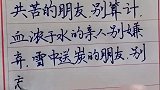 共苦的朋友,别算计.
血浓于水的亲人别嫌
弃.雪中送炭的朋友,别